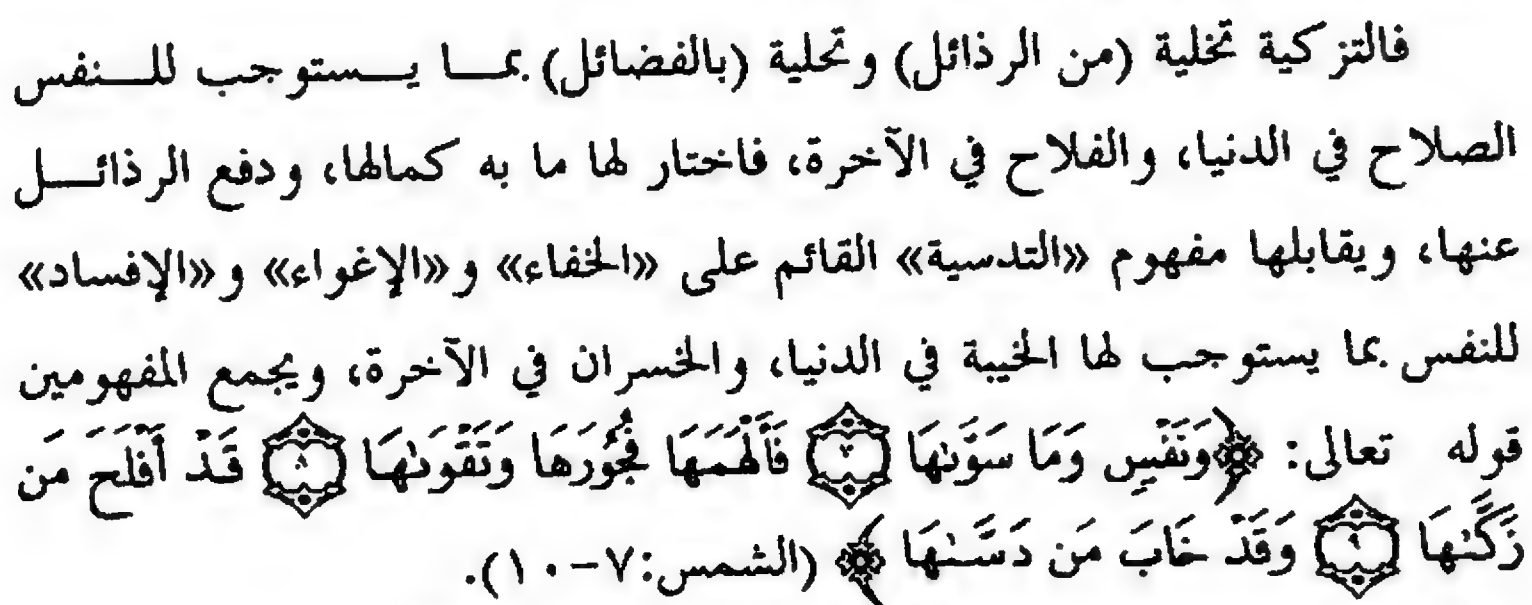 فالتزكية تخلية (من الرذائل) وتحلية (بالفضائل) بما يستوجب للنفس
الصلاح في الدنيا، والفلاح في الآخرة، فاختار لها ما به كمالها، ودفع الرذائل
عنها، ويقابلها مفهوم «التدسية» القائم على «الخفاء» و«الإغواء» و«الإفساد»
للنفس بما يستوجب لها الخيبة في الدنيا، والخسران في الآخرة، ويجمع المفهومين
قوله تعالى: ﴿وَنَفْسٍ وَمَا سَوَّىٰهَا ۝٧ فَأَلْهَمَهَا فُجُورَهَا وَتَقْوَىٰهَا ۝٨ قَدْ أَفْلَحَ مَن
زَكَّىٰهَا ۝٩ وَقَدْ خَابَ مَن دَسَّىٰهَا﴾ (الشمس:٧-١٠).